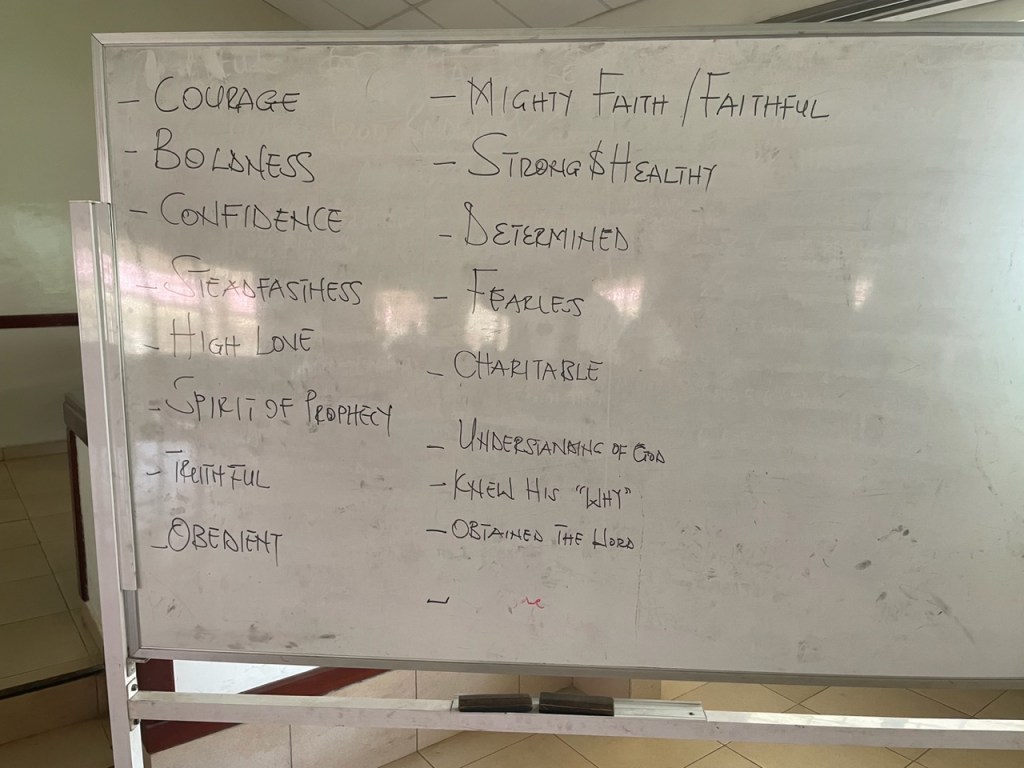 - COURAGE
- BOLDNESS
- CONFIDENCE
- STEADFASTNESS
- HIGH LOVE
- SPIRIT OF PROPHECY
- TRUTHFUL
- OBEDIENT
- MIGHTY FAITH / FAITHFUL
- STRONG $ HEALTHY
- DETERMINED
- FEARLESS
- CHARITABLE
- UNDERSTANDING OF GOD
- KNEW HIS "WHY"
- OBTAINED THE WORD
-